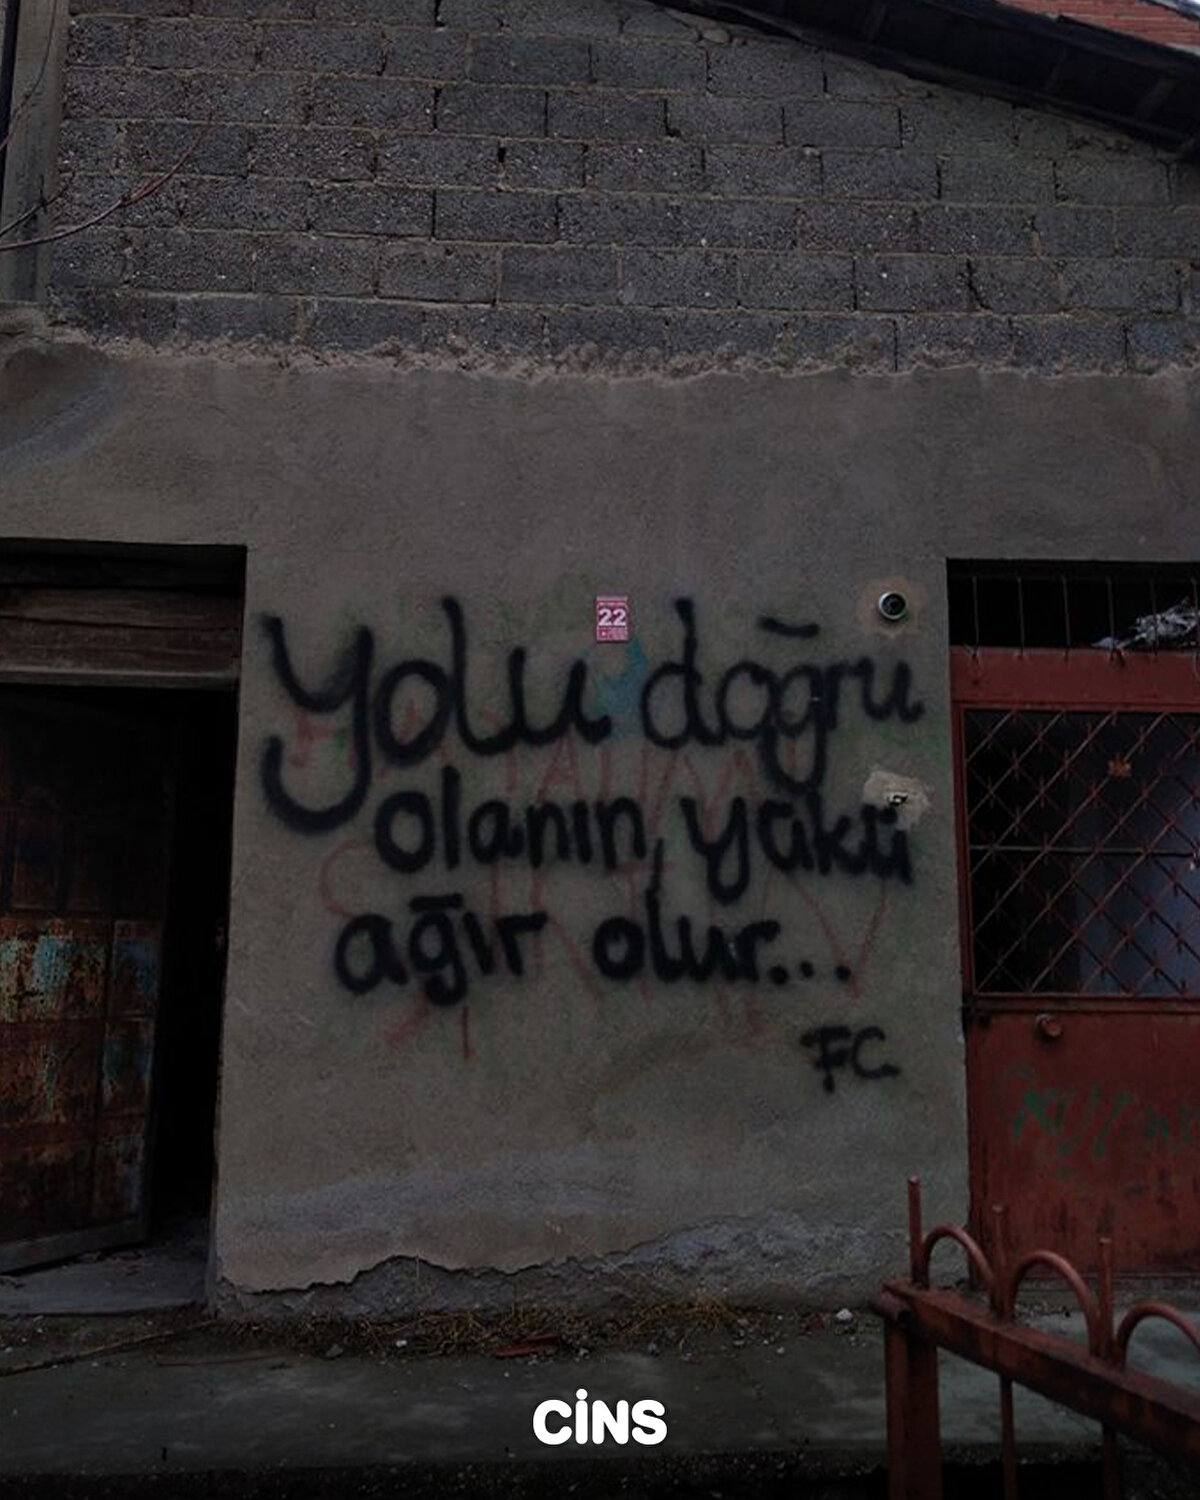 22
Yolu doğru
olanın, yükü
ağır olur...
FC
CİNS